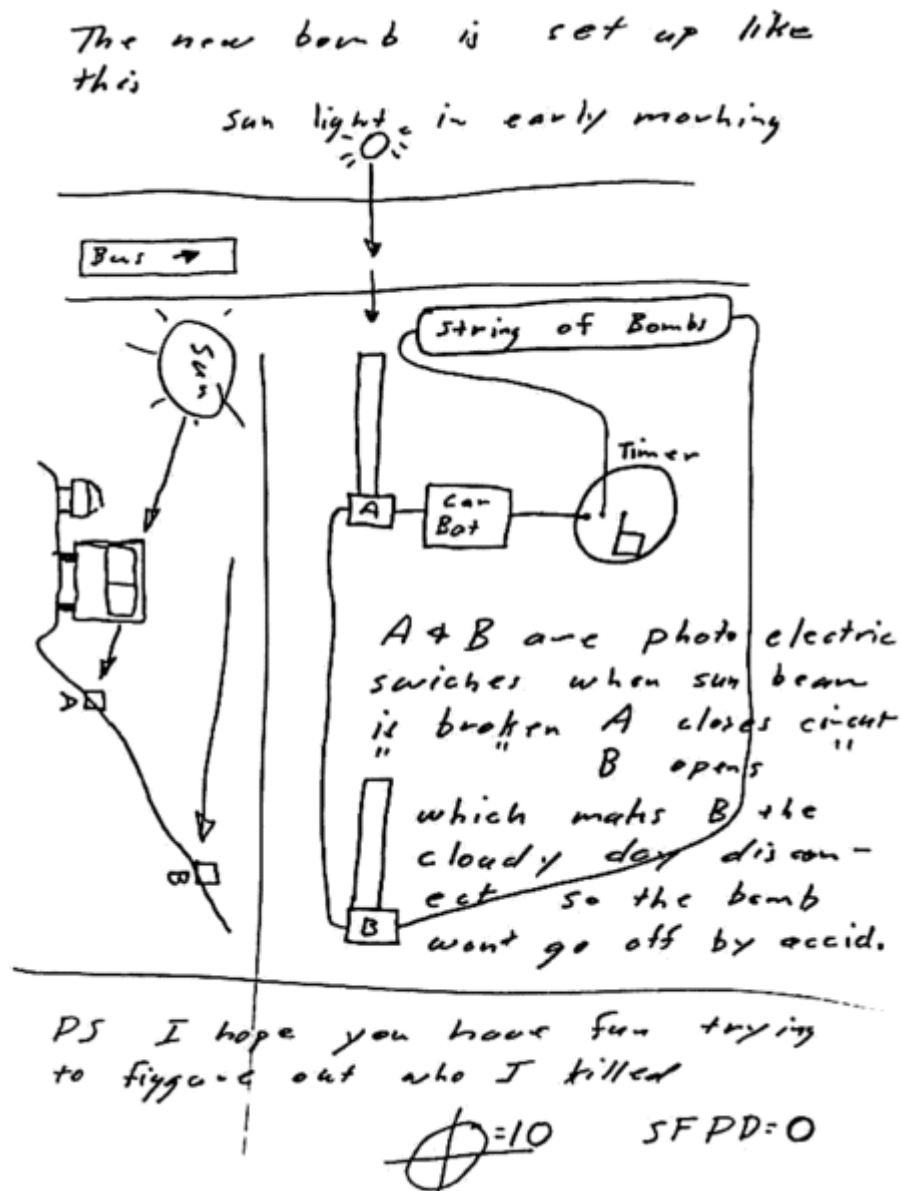 The new bomb is set up like
this
sun light in early morning
Bus
Sun
String of Bombs
Timer
A
Car
Bat
A & B are photo electric
swiches when sun beam
is broken A closes circut
" " B opens "
which maks B the
cloudy day discon-
ect so the bomb
wont go off by accid.
A
B
B
PS I hope you have fun trying
to figgure out who I killed
=10 SFPD=0